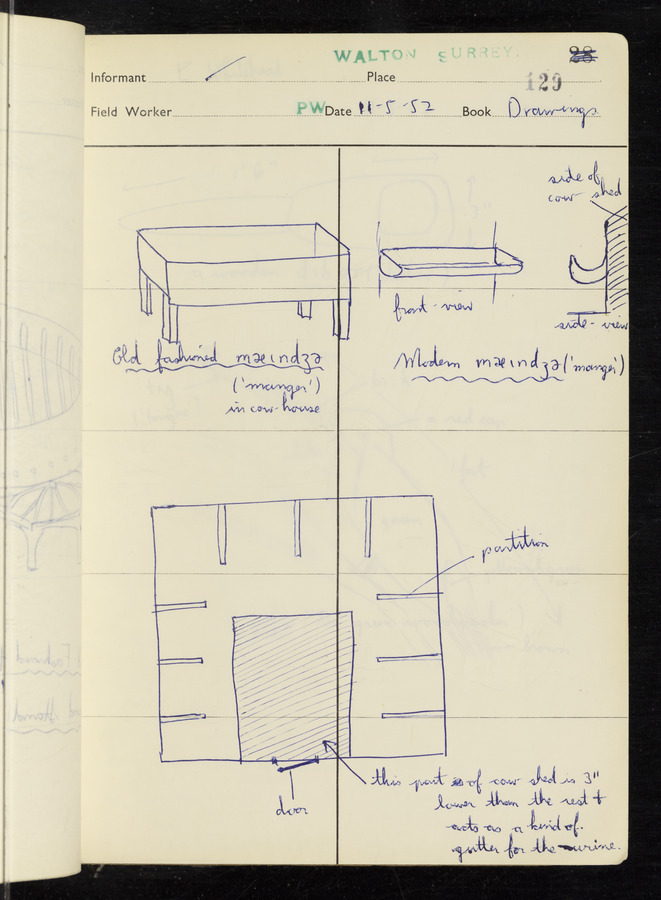 WALTON SURREY.
28
Informant
Place
129
Field Worker
PW
Date 11-5-52
Book Drawings
side of
cow shed
front-view
side-view
Old fashioned mæindzə
('manger')
in cow-house
Modern mæindzə ('manger')
partition
door
this part of cow shed is 3"
lower than the rest +
acts as a kind of
gutter for the urine.